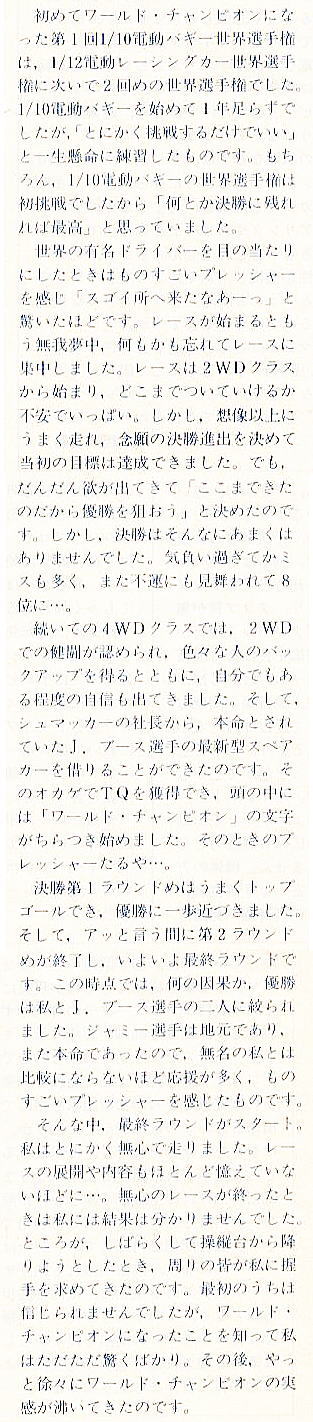 初めてワールド・チャンピオンにな
った第１回1/10電動バギー世界選手権
は，1/12電動レーシングカー世界選手
権に次いで２回めの世界選手権でした。
1/10電動バギーを始めて１年足らずで
したが，「とにかく挑戦するだけでいい」
と一生懸命に練習したものです。もち
ろん，1/10電動バギーの世界選手権は
初挑戦でしたから「何とか決勝に残れ
れば最高」と思っていました。
　世界の有名ドライバーを目の当たり
にしたときはものすごいプレッシャー
を感じ「スゴイ所へ来たなあーっ」と
驚いたほどです。レースが始まるとも
う無我夢中，何もかも忘れてレースに
集中しました。レースは２WDクラス
から始まり，どこまでついていけるか
不安でいっぱい。しかし，想像以上に
うまく走れ，念願の決勝進出を決めて
当初の目標は達成できました。でも，
だんだん欲が出てきて「ここまできた
のだから優勝を狙おう」と決めたので
す。しかし，決勝はそんなにあまくは
ありませんでした。気負い過ぎてかミ
スも多く，また不運にも見舞われて８
位に…。
　続いての４WDクラスでは，２WD
での健闘が認められ，色々な人のバッ
クアップを得るとともに，自分でもあ
る程度の自信も出てきました。そして，
シュマッカーの社長から，本命とされ
ていたJ．ブース選手の最新型スペア
カーを借りることができたのです。そ
のオカゲでTQを獲得でき，頭の中に
は「ワールド・チャンピオン」の文字
がちらつき始めました。そのときのプ
レッシャーたるや…。
　決勝第１ラウンドめはうまくトップ
ゴールでき，優勝に一歩近づきました。
そして，アッと言う間に第２ラウンド
めが終了し，いよいよ最終ラウンドで
す。この時点では，何の因果か，優勝
は私とJ．ブース選手の二人に絞られ
ました。ジャミー選手は地元であり，
また本命であったので，無名の私とは
比較にならないほど応援が多く，もの
すごいプレッシャーを感じたものです。
　そんな中，最終ラウンドがスタート。
私はとにかく無心で走りました。レー
スの展開や内容もほとんど憶えていな
いほどに…。無心のレースが終ったと
きは私には結果は分かりませんでした。
ところが，しばらくして操縦台から降
りようとしたとき，周りの皆が私に握
手を求めてきたのです。最初のうちは
信じられませんでしたが，ワールド・
チャンピオンになったことを知って私
はただただ驚くばかり。その後，やっ
と徐々にワールド・チャンピオンの実
感が沸いてきたのです。